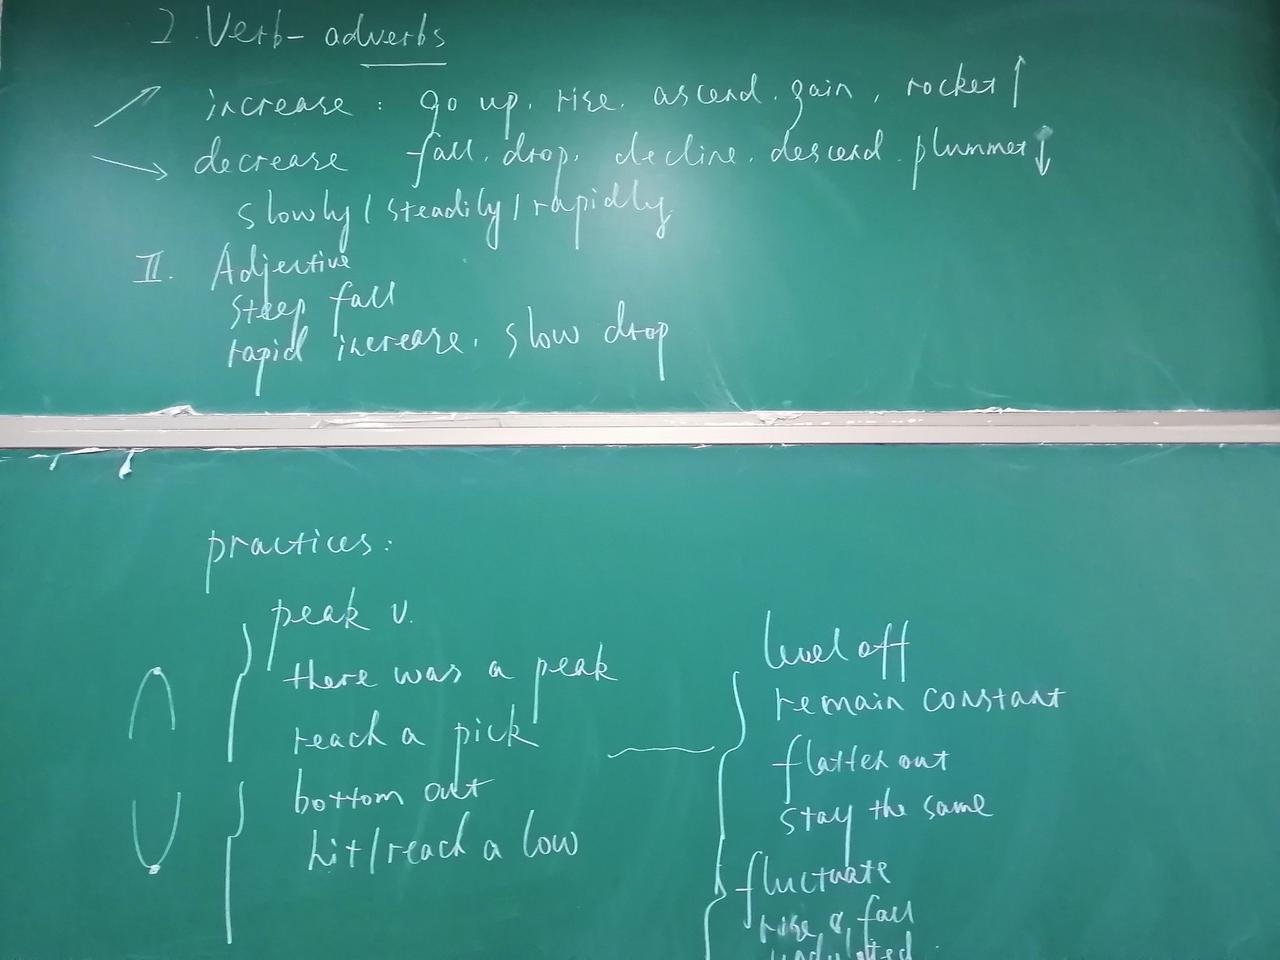 I. Verb- adverbs
increase : go up. rise. ascend. gain, rocket ↑
decrease fall. drop. decline. descend. plummet ↓
slowly / steadily / rapidly
II. Adjective
steep fall
rapid increase. slow drop
practices:
peak v.
there was a peak
reach a pick
bottom out
hit/reach a low
level off
remain constant
flatten out
stay the same
fluctuate
rise & fall